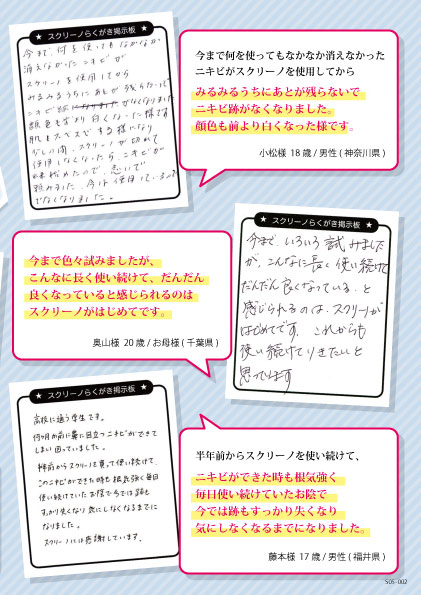 ★ スクリーノらくがき掲示板 ★
今まで、何を使ってもなかなか
消えなかったニキビが
スクリーノを使用してから
みるみるうちにあとが残らないで
ニキビ跡がなくなりました。
顔色も前より白くなった様です
肌もスベスベする様になり
少しの間、スクリーノが切れて
使用しなくなったら、ニキビが
出始めたので、急いで
頼みました。今は使用しているので
でなくなりました。
今まで何を使ってもなかなか消えなかった
ニキビがスクリーノを使用してから
みるみるうちにあとが残らないで
ニキビ跡がなくなりました。
顔色も前より白くなった様です。
小松様 18歳/男性(神奈川県)
今まで色々試みましたが、
こんなに長く使い続けて、だんだん
良くなっていると感じられるのは
スクリーノがはじめてです。
奥山様 20歳/お母様(千葉県)
★ スクリーノらくがき掲示板 ★
今まで、いろいろ試みました
が、こんなに長く使い続けて
だんだん良くなっている、と
感じられるのは、スクリーノが
はじめてです。これからも
使い続けて行きたいと
思っています
★ スクリーノらくがき掲示板 ★
高校に通う学生です。
何ヶ月か前に鼻に目立つニキビができて
しまい困っていました。
半年前からスクリーノを買って使い続けて、
このニキビができた時も根気強く毎日
使い続けていたお陰で今では跡も
すっかり失くなり気にしなくなるまでに
なりました。
スクリーノには感謝しています。
半年前からスクリーノを使い続けて、
ニキビができた時も根気強く
毎日使い続けていたお陰で
今では跡もすっかり失くなり
気にしなくなるまでになりました。
藤本様 17歳/男性(福井県)
S05-002